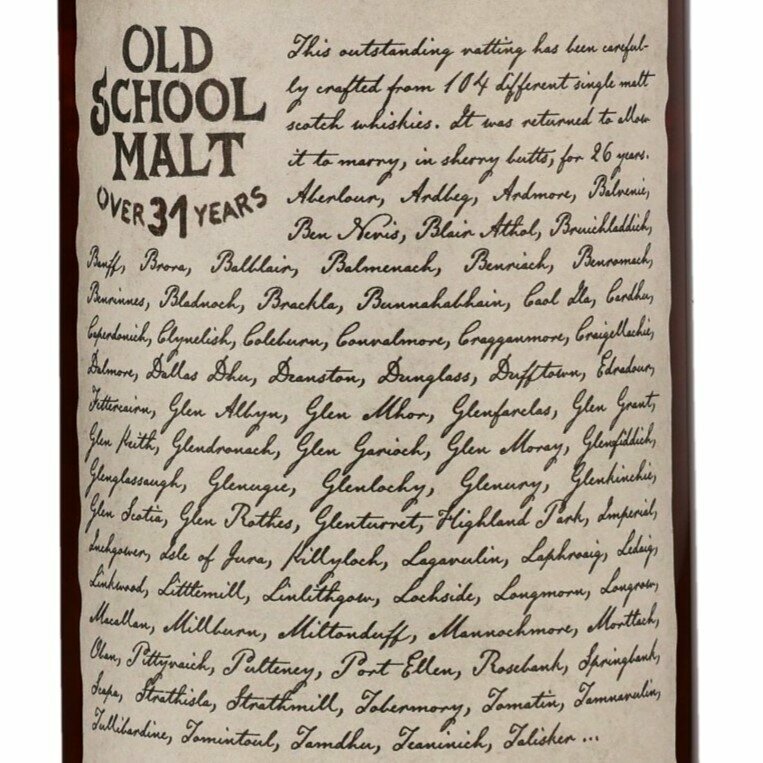 OLD
SCHOOL
MALT
OVER 31 YEARS
This outstanding vatting has been careful-
ly crafted from 104 different single malt
scotch whiskies. It was returned to allow
it to marry, in sherry butts, for 26 years.
Aberlour, Ardbeg, Ardmore, Balvenie,
Ben Nevis, Blair Athol, Bruichladdich,
Banff, Brora, Balblair, Balmenach, Benriach, Benromach,
Benrinnes, Bladnoch, Brackla, Bunnahabhain, Caol Ila, Cardhu,
Caperdonich, Clynelish, Coleburn, Convalmore, Cragganmore, Craigellachie,
Dalmore, Dallas Dhu, Deanston, Dunglass, Dufftown, Edradour,
Fettercairn, Glen Albyn, Glen Mhor, Glenfarclas, Glen Grant,
Glen Keith, Glendronach, Glen Garioch, Glen Moray, Glenfiddich,
Glenglassaugh, Glenugie, Glenlochy, Glenury, Glenkinchie,
Glen Scotia, Glen Rothes, Glenturret, Highland Park, Imperial,
Inchgower, Isle of Jura, Killyloch, Lagavulin, Laphroaig, Ledaig,
Linkwood, Littlemill, Linlithgow, Lochside, Longmorn, Longrow,
Macallan, Millburn, Miltonduff, Mannochmore, Mortlach,
Oban, Pittyvaich, Pulteney, Port Ellen, Rosebank, Springbank,
Scapa, Strathisla, Strathmill, Tobermory, Tomatin, Tamnavulin,
Tullibardine, Tomintoul, Tamdhu, Teaninich, Talisker ...